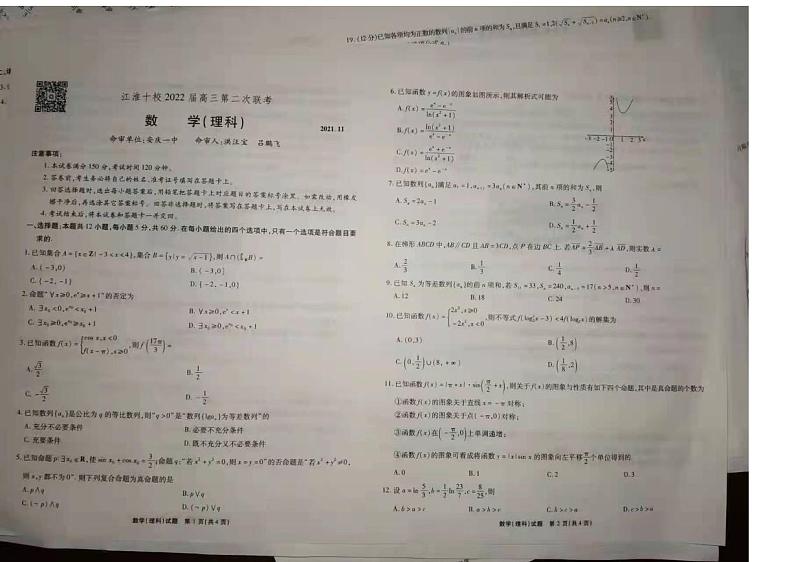 19.(12分)已知各项均为正数的数列{aₙ}的前n项的和为Sₙ,且满足S₁=1,2(√Sₙ+√Sₙ₋₁)=aₙ(n≥2,n∈N*).
江淮十校2022届高三第二次联考
数 学(理科) 2021.11
命审单位:安庆一中 命审人:洪汪宝 吕鹏飞
注意事项:
1.本试卷满分150分,考试时间120分钟。
2.答卷前,考生务必将自己的姓名、准考证号填写在答题卡上。
3.回答选择题时,选出每小题答案后,用铅笔把答题卡上对应题目的答案标号涂黑。如需改动,用橡皮
擦干净后,再选涂其它答案标号。回答非选择题时,将答案写在答题卡上,写在本试卷上无效。
4.考试结束后,将本试卷和答题卡一并交回。
一、选择题:本题共12小题,每小题5分,共60分.在每小题给出的四个选项中,只有一个选项是符合题目要
求的.
1.已知集合A={x∈Z|-3<x<4},集合B={y|y=√(x-1)},则A∩(∁ᵣB)=
A.(-3,0) B.(-3,0]
C.{-2,-1} D.{-2,-1,0}
2.命题“∀x≥0,eˣ≥x+1”的否定为
A.∃x₀<0,e^x₀<x₀+1 B.∀x≥0,eˣ<x+1
C.∃x₀≥0,e^x₀≥x₀+1 D.∃x₀≥0,e^x₀<x₀+1
3.已知函数f(x)={cos x,x<0 f(x-π),x≥0,则f(17π/3)=
A.√3/2 B.1/2
C.-√3/2 D.-1/2
4.已知数列{aₙ}是公比为q的等比数列,则“q>0”是“数列{lgaₙ}为等差数列”的
A.充分不必要条件 B.必要不充分条件
C.充要条件 D.既不充分又不必要条件
5.已知命题p:∃x₀∈R,使sin x₀+cos x₀=3/2;命题q:“若x²+y²=0,则x=y=0”的否命题是“若x²+y²≠0,
则x,y都不为0”.则下列复合命题为真命题的是
A.p∧q B.p∨q
C.(¬p)∧q D.(¬p)∨q
数学(理科)试题 第1页(共4页)
6.已知函数y=f(x)的图象如图所示,则其解析式可能为
A.f(x)=(eˣ-e⁻ˣ)/ln(x²+1)
B.f(x)=ln(x²+1)/(eˣ-e⁻ˣ)
C.f(x)=(eˣ+e⁻ˣ)/ln(x²+1)
D.f(x)=eˣ-e⁻ˣ
7.已知数列{aₙ}满足a₁=1,aₙ₊₁=3aₙ(n∈N*),其前n项的和为Sₙ,则
A.Sₙ=2aₙ-1 B.Sₙ=3/2aₙ-1/2
C.Sₙ=3aₙ-2 D.Sₙ=1/2aₙ+1/2
8.在梯形ABCD中,AB∥CD且AB=3CD,点P在边BC上.若AP=2/3AB+λAD,则实数λ=
A.2/3 B.1/3 C.1/4 D.1/2
9.已知Sₙ为等差数列{aₙ}的前n项和,若S₁₁=33,Sₙ=240,aₙ₋₅=17(n>5,n∈N*),则n=
A.12 B.18 C.24 D.30
10.已知函数f(x)={2x²,x≥0 -2x²,x<0,则不等式f(log₂x-3)<4f(log₂x)的解集为
A.(0,3) B.(1/2,8)
C.(0,1/2)∪(8,+∞) D.(1/8,2)
11.已知函数f(x)=|π+x|·sin(π/2+x),则关于f(x)的图象与性质有如下四个命题,其中是真命题的个数为
①函数f(x)的图象关于直线x=-π对称;
②函数f(x)的图象关于点(-π,0)对称;
③函数f(x)在(-π/2,0)上单调递增;
④函数f(x)的图象可看成将函数y=|x|sin x的图象向左平移π/2个单位得到的.
A.0 B.1 C.2 D.3
12.设a=ln 5/3,b=1/2 ln 23/7,c=8/25,则
A.b>a>c B.a>b>c C.b>c>a D.c>b>a
数学(理科)试题 第2页(共4页)